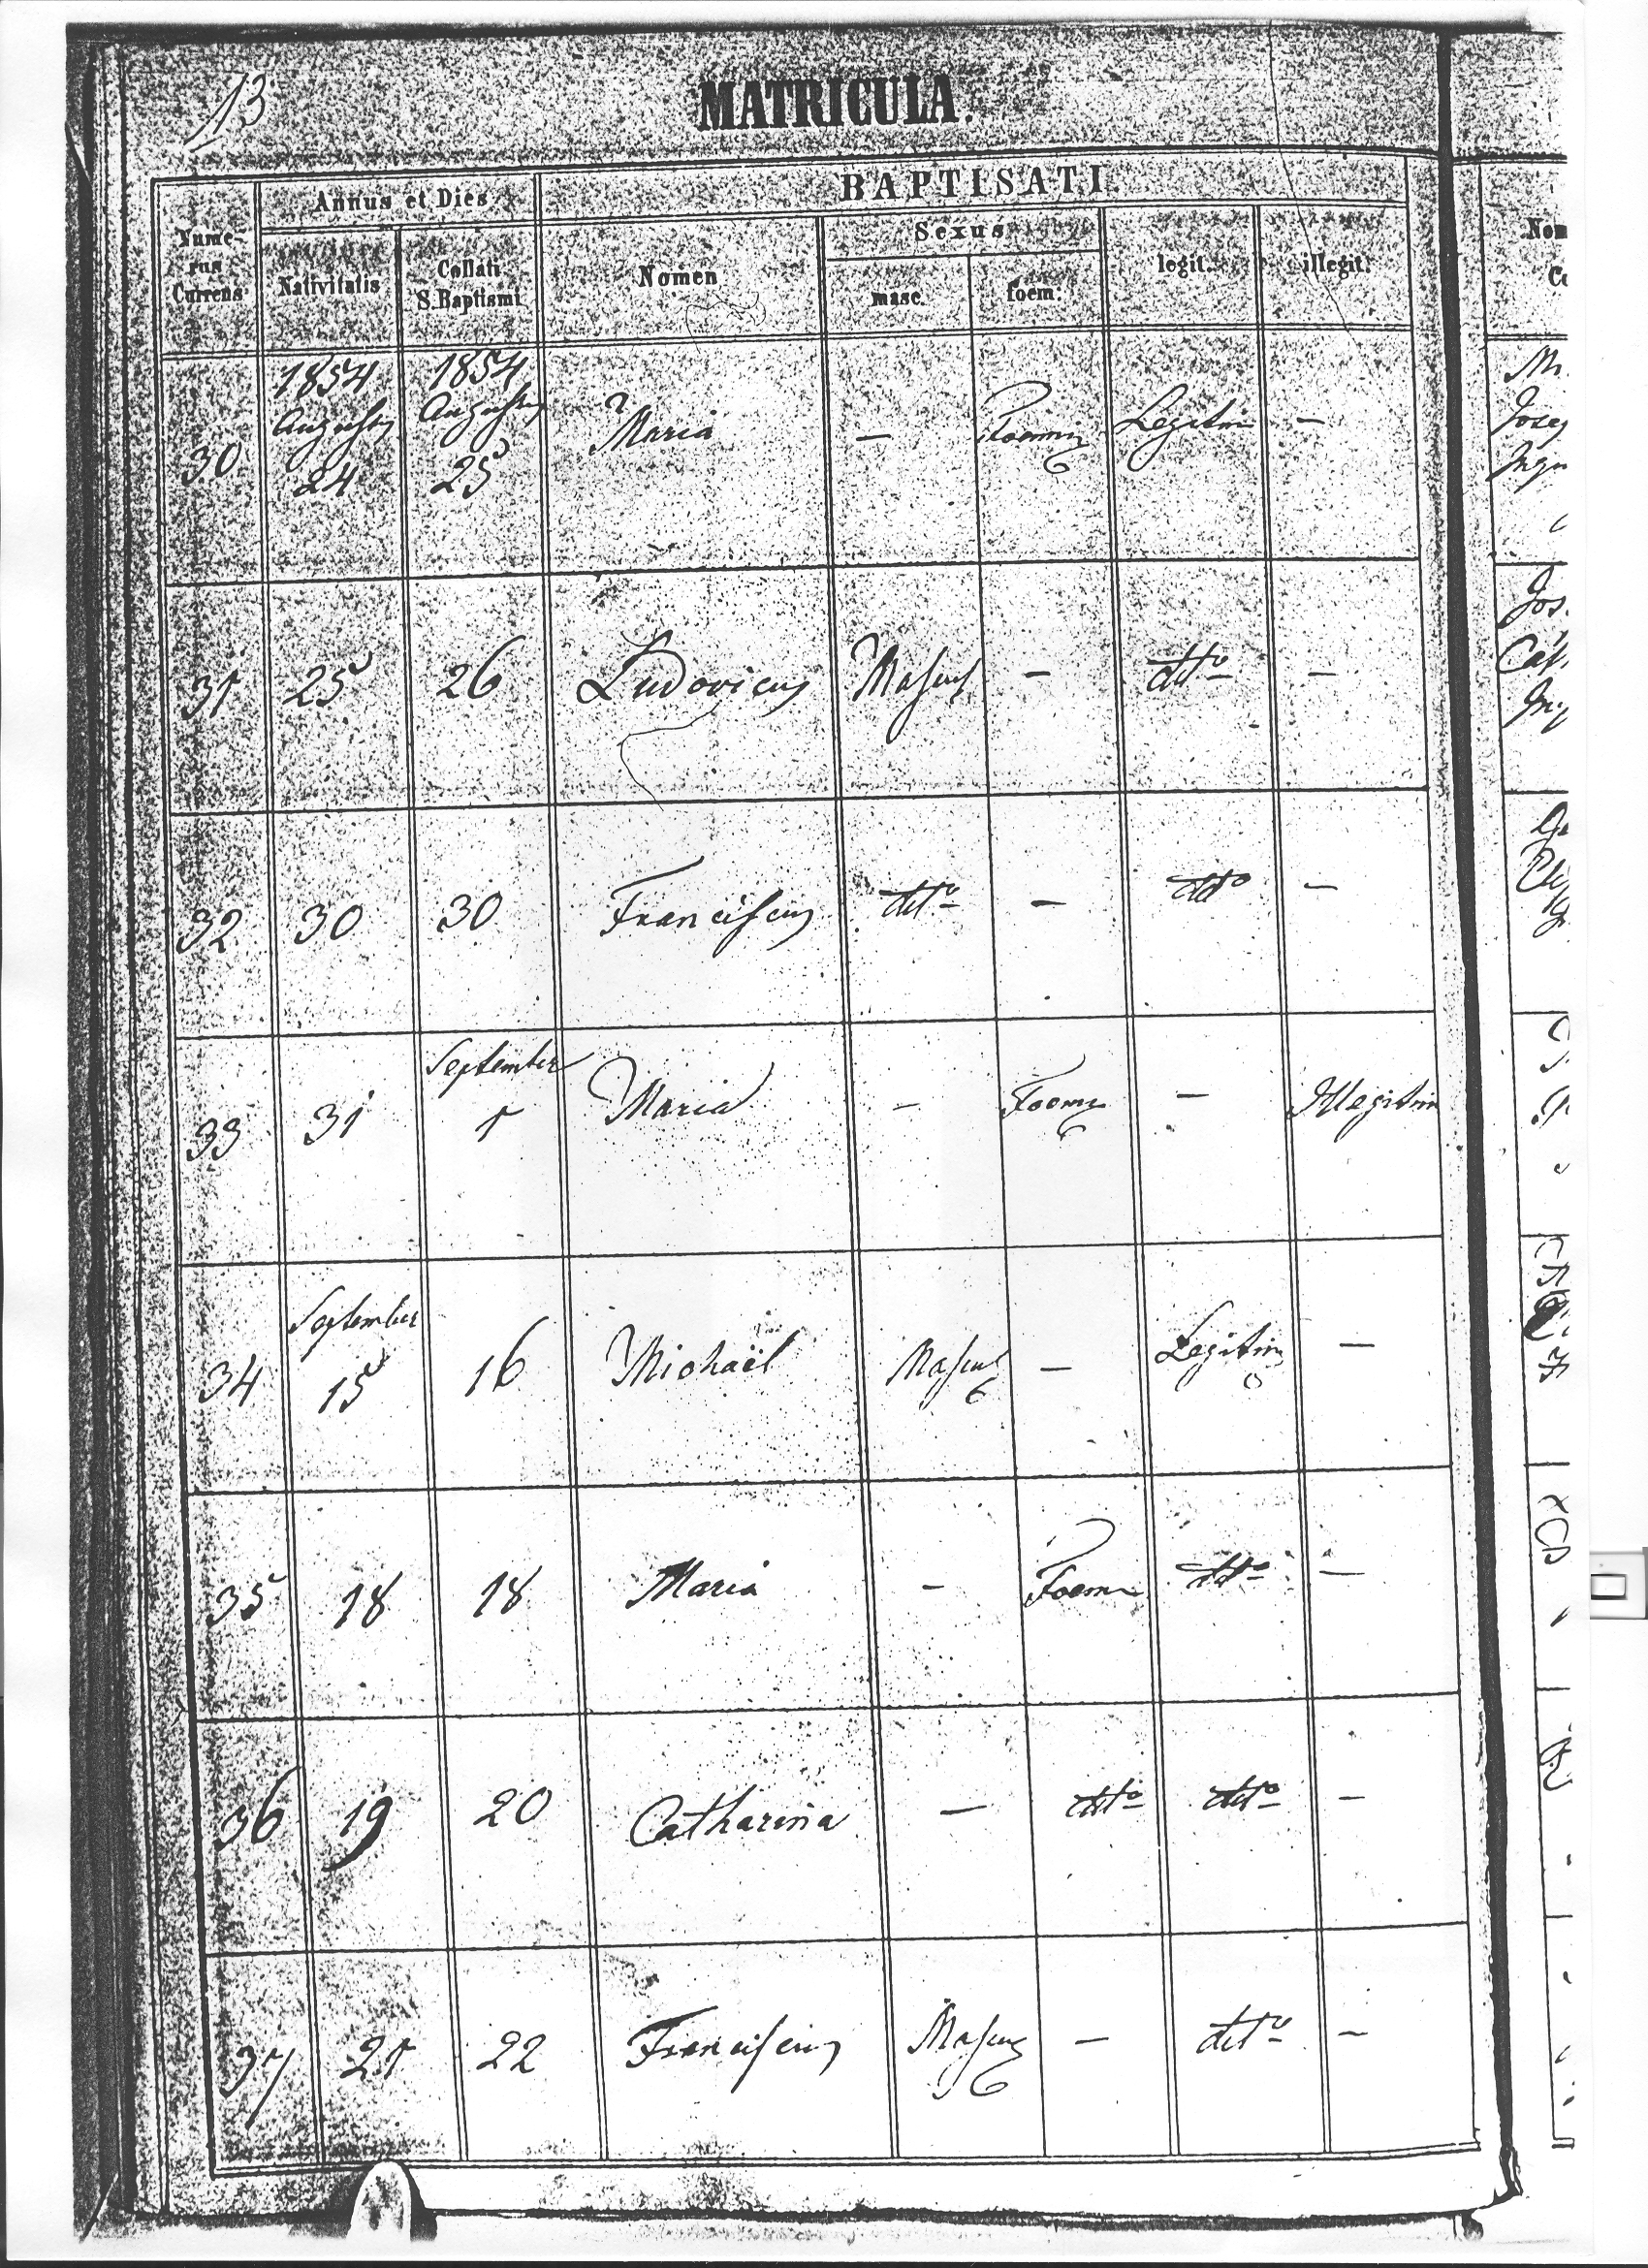 13
MATRICULA.
Numerus Currens
Annus et Dies
Nativitatis
Collati S. Baptismi
BAPTISATI
Nomen
Sexus
masc.
foem.
legit.
illegit.
30 1854 Augustus 24 1854 Augustus 25 Maria — Foemin Legitim —
31 25 26 Ludovicus Mascul — dtto —
32 30 30 Franciscus dtto — dtto —
33 31 September 1 Maria — Foem — Illegitim
34 September 15 16 Michaël Mascul — Legitim —
35 18 18 Maria — Foem dtto —
36 19 20 Catharina — dtto dtto —
37 21 22 Franciscus Mascul — dtto —